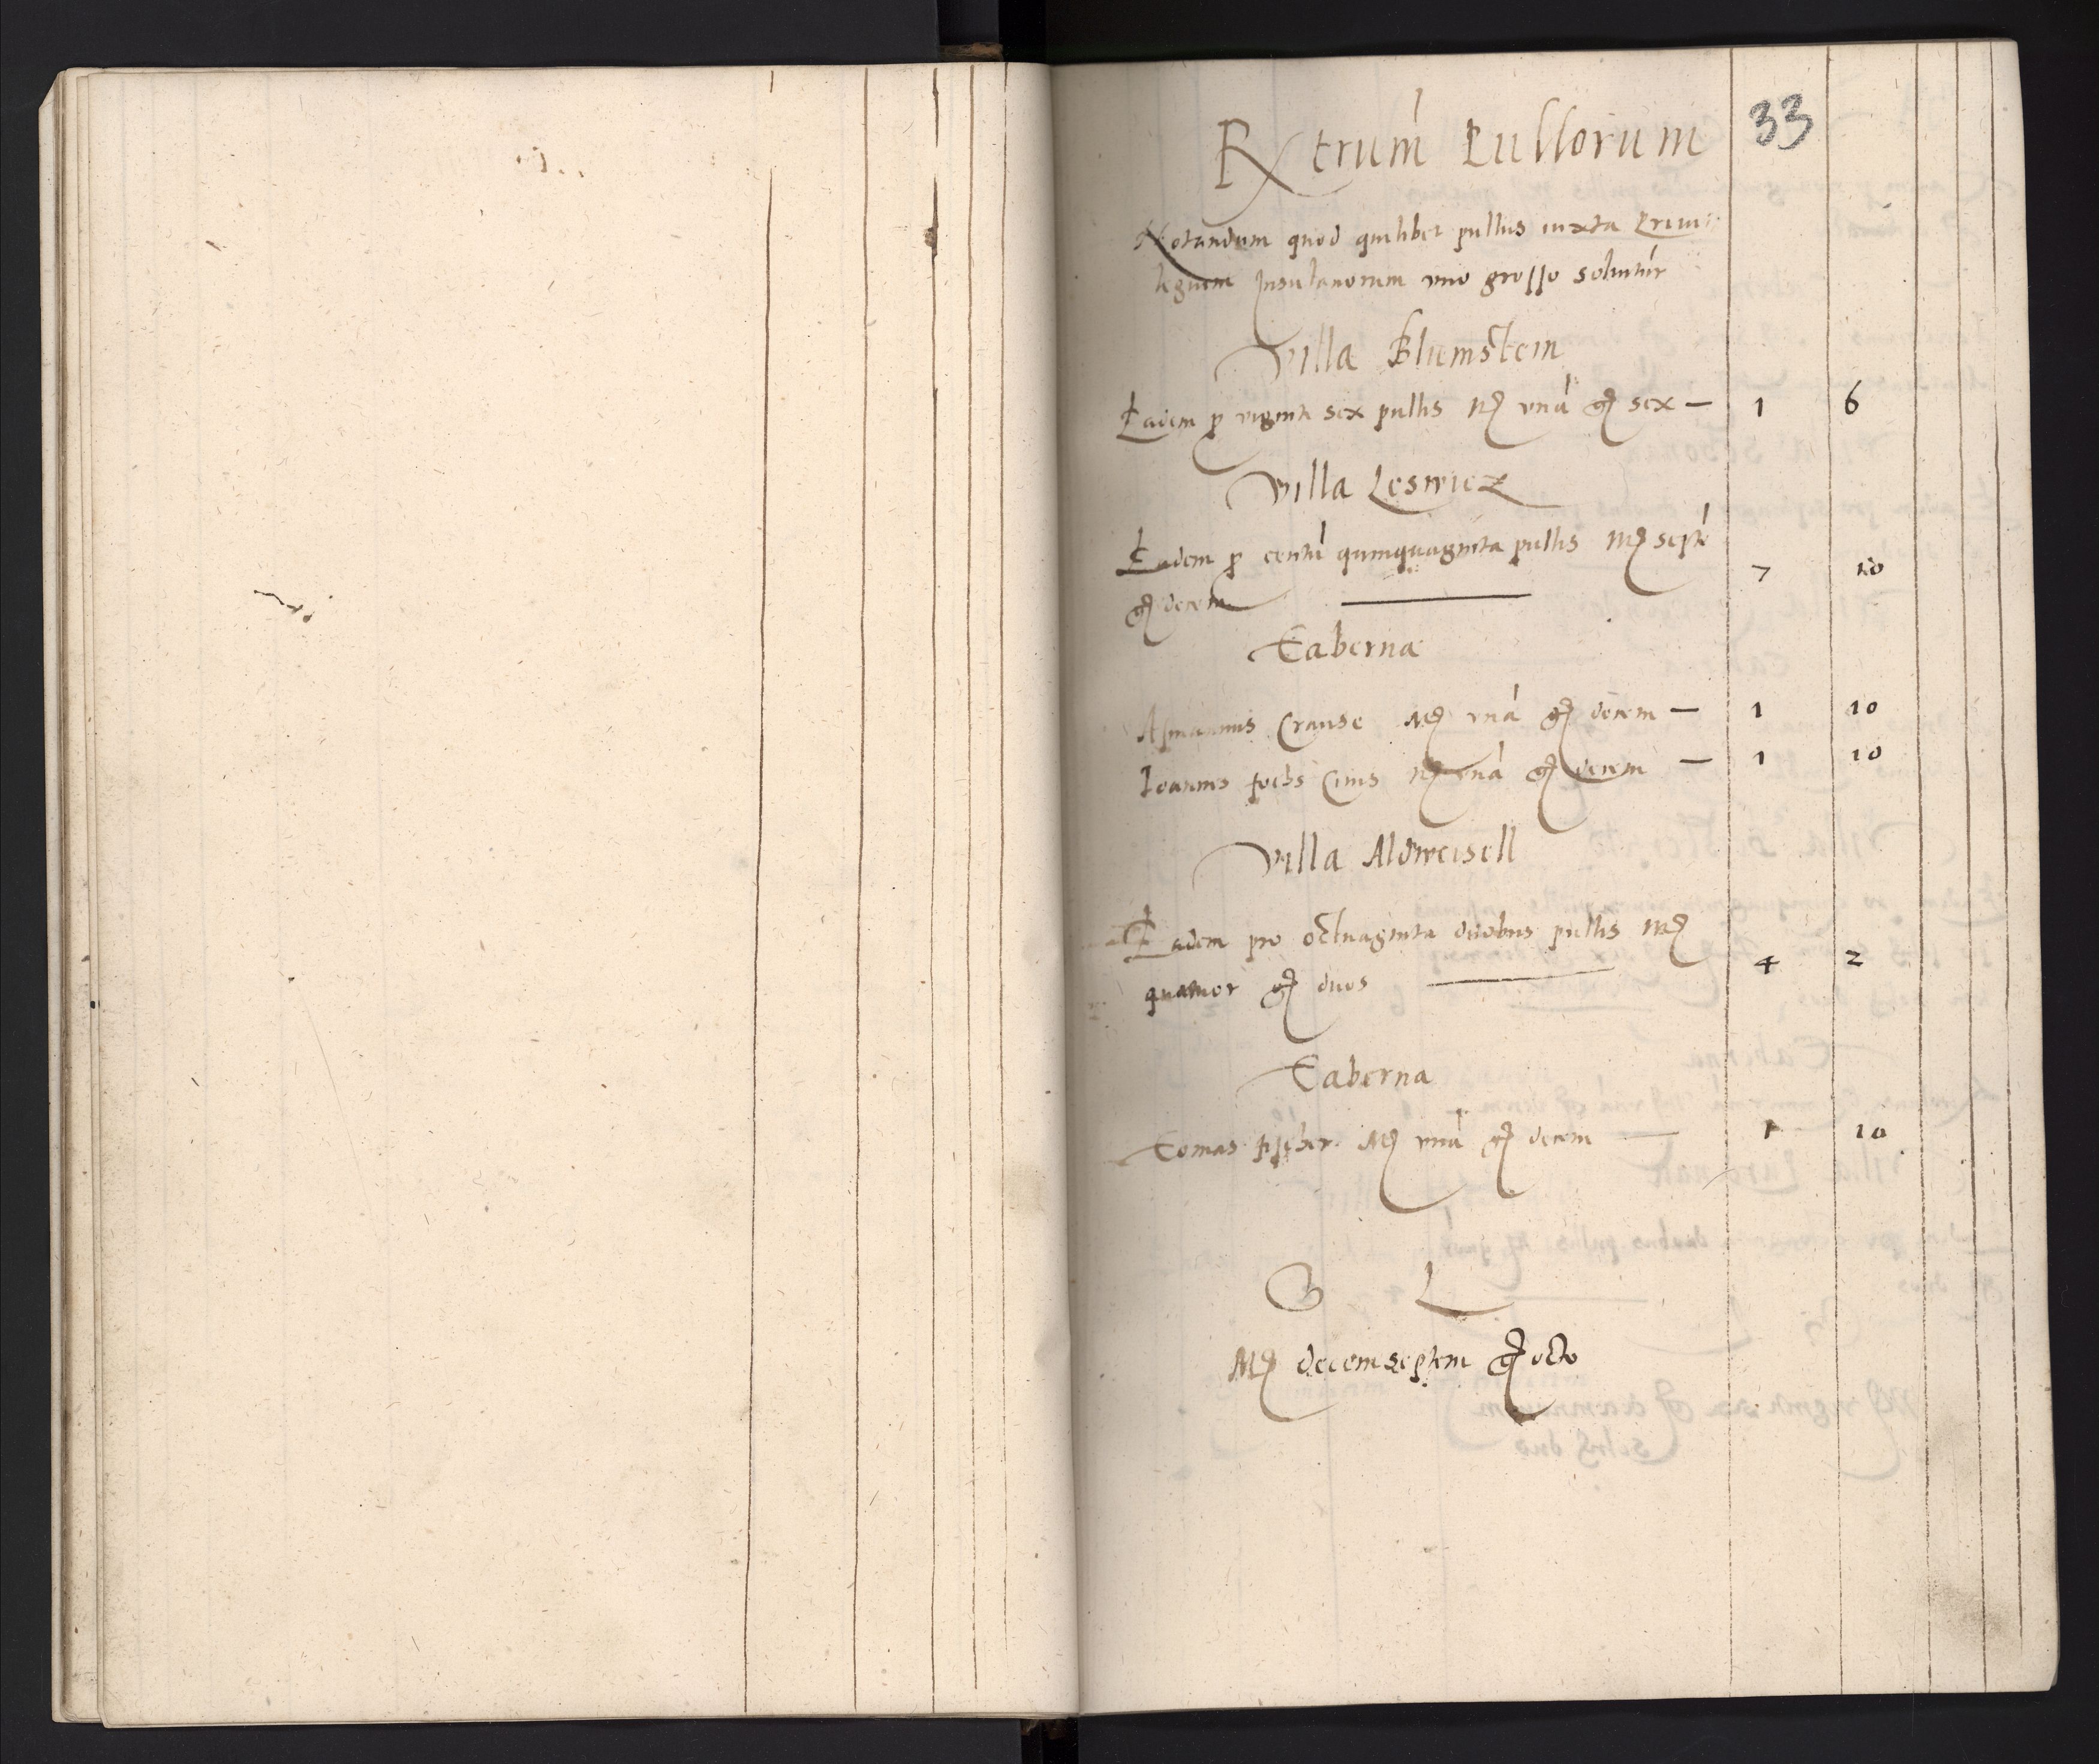 33
Rx trum̄ Pullorum
Notandum quod quilibet pullus iuxta Priui
legium Insulanorum vno grosso soluitur
Villa Blumstein
Eadem p viginti sex pullis M vna g sex — 1 6
Villa Leswicz
Eadem p centū quinquaginta pullis M septē
g decem — 7 10
Taberna
Asmannus Crause M vna g decem — 1 10
Ioannes fochs Ciuis M vna g decem — 1 10
Villa Aldweisell
Eadem pro octuaginta duobus pullis M
quatuor g duos — 4 2
Taberna
Tomas fischer M vnā g decem — 1 10
G L
M decemseptem g octo